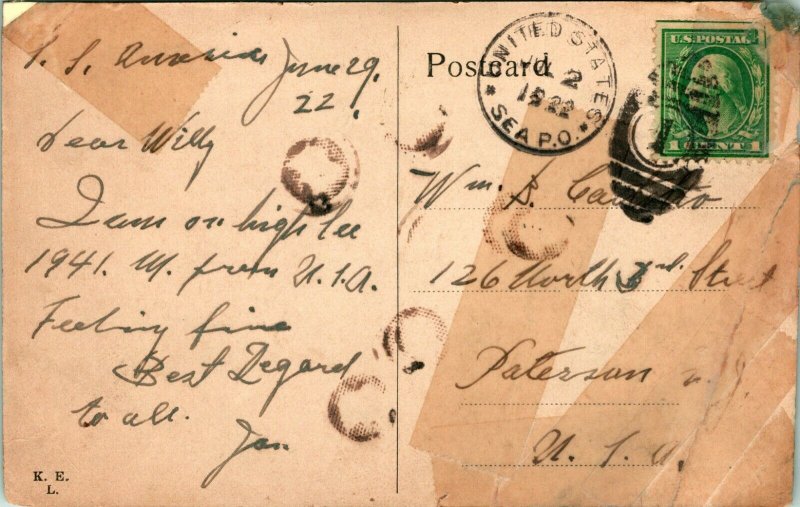 S. S. America June 29,
22.
Dear Willy
I am on high see
1941. M. from U.S.A.
Feeling fine
Best Regard
to all.
Jan
K. E.
L.
Postcard
UNITED STATES
2
1922
SEA P.O.
U.S. POSTAGE
1 CENT 1
Wm. B.
126 North 3rd. Street
Paterson
U. S. A.